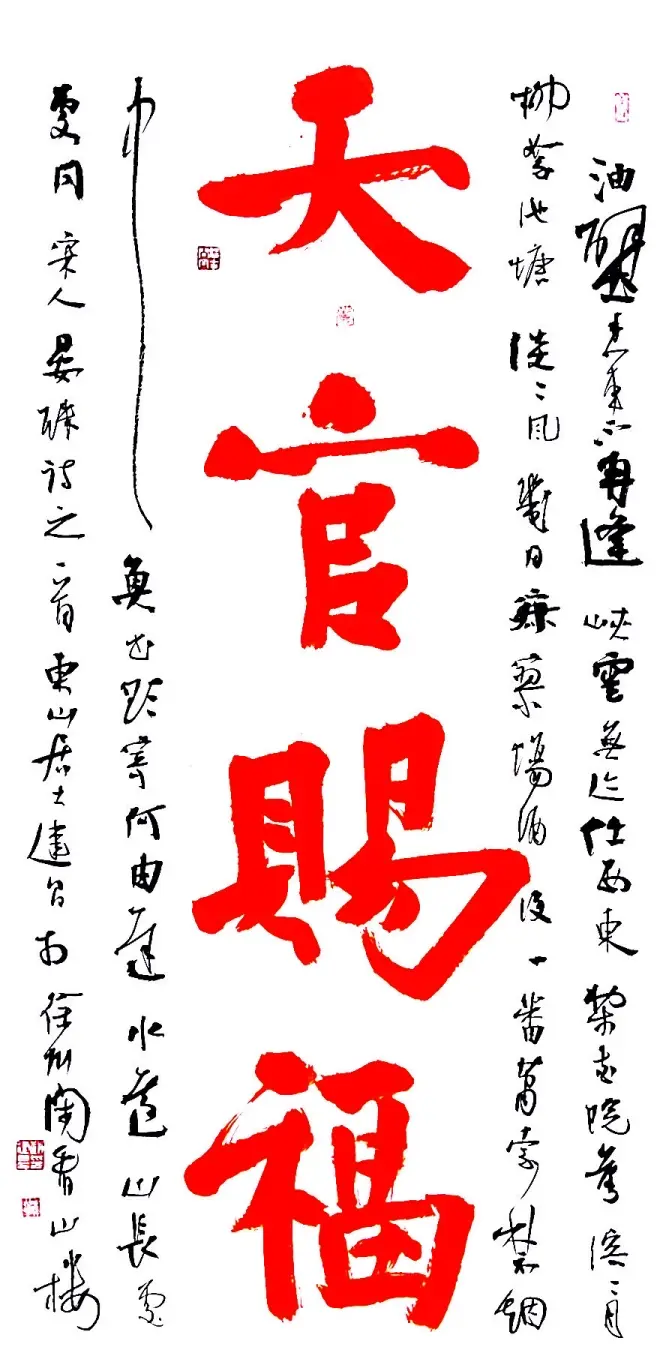 油壁香車不再逢 峽雲無跡任西東 梨花院落溶〻月
柳絮池塘淡〻風 幾日寂寥傷酒後 一番蕭索禁烟
天官賜福
中 魚書欲寄何由達 水遠山長處
處同 宋人晏殊詩之一首 東山居士 於徐州聞香山樓